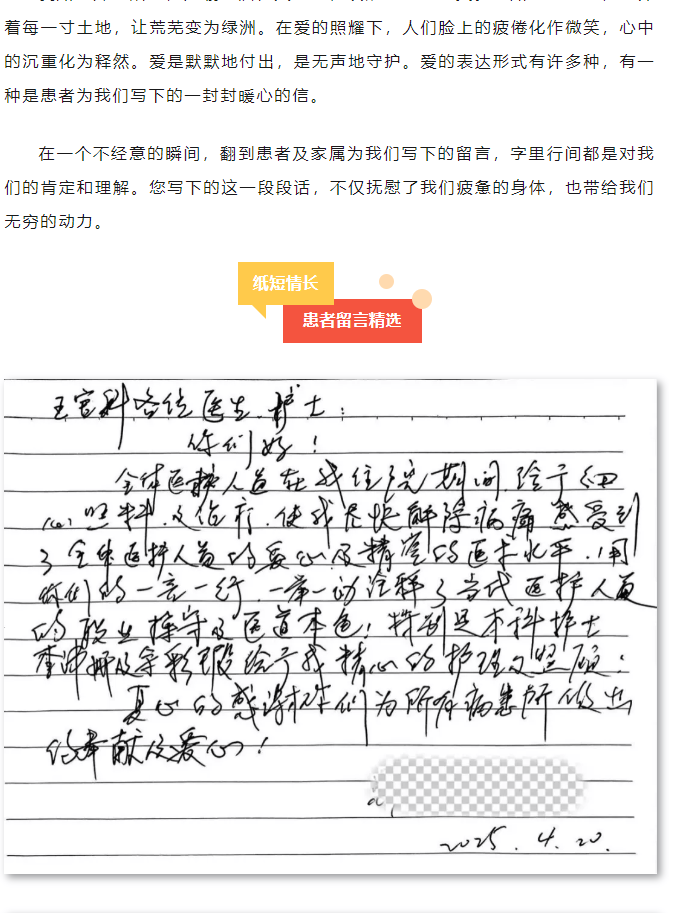 着每一寸土地，让荒芜变为绿洲。在爱的照耀下，人们脸上的疲倦化作微笑，心中
的沉重化为释然。爱是默默地付出，是无声地守护。爱的表达形式有许多种，有一
种是患者为我们写下的一封封暖心的信。
在一个不经意的瞬间，翻到患者及家属为我们写下的留言，字里行间都是对我
们的肯定和理解。您写下的这一段段话，不仅抚慰了我们疲惫的身体，也带给我们
无穷的动力。
纸短情长
患者留言精选
科各位医生、护士：
你们好！
全体医护人员在我住院期间，给予细
心照料及治疗，使我尽快解除病痛，感受到
了全体医护人员的爱心及精湛的医术水平，用
你们的一言一行，一举一动诠释了当代医护人员
的职业操守及医道本色！特别是本科护士
给予我精心的护理及照顾：
衷心的感谢你们为所有病患所做出
的奉献及爱心！
2025.4.20.